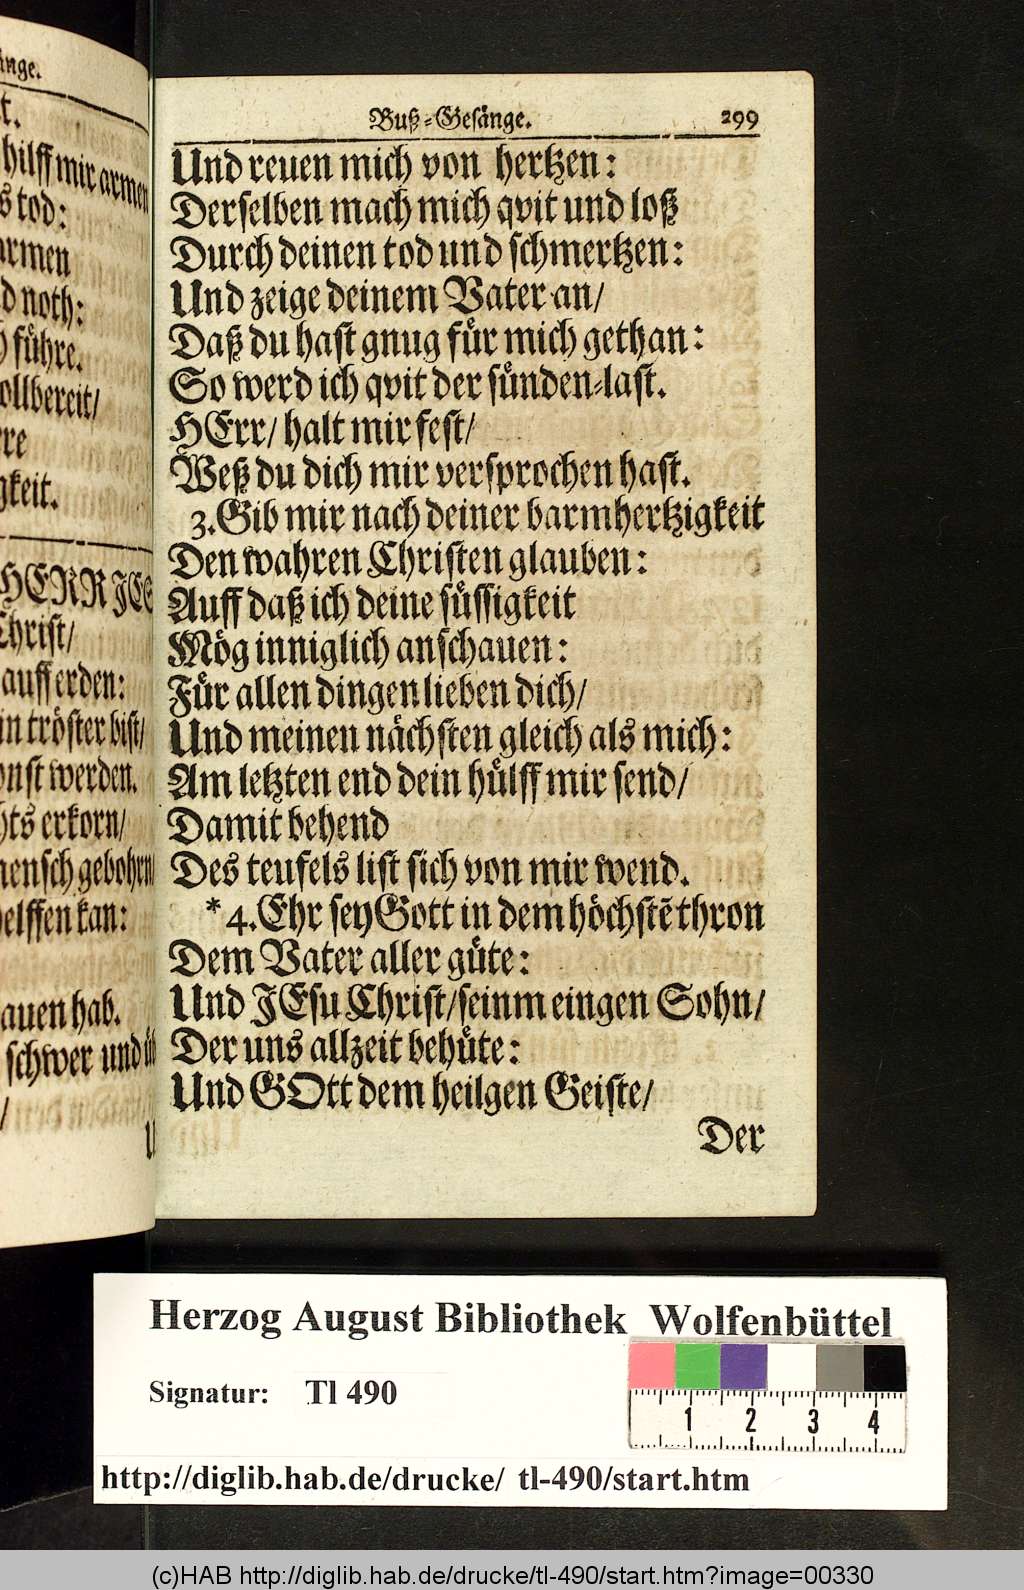 änge.
t.
hilff mir armen
s tod:
armen
d noth:
führe.
ollbereit/
re
gkeit.
HERR JES
Christ/
auff erden:
in tröster bist/
onst werden.
hts erkorn/
mensch gebohrn/
elffen kan:
auen hab.
schwer und üb
/
U
Buß-Gesänge. 299
Und reuen mich von hertzen:
Derselben mach mich qvit und loß
Durch deinen tod und schmertzen:
Und zeige deinem Vater an/
Daß du hast gnug für mich gethan:
So werd ich qvit der sünden-last.
HErr/ halt mir fest/
Weß du dich mir versprochen hast.
3. Gib mir nach deiner barmhertzigkeit
Den wahren Christen glauben:
Auff daß ich deine süssigkeit
Mög inniglich anschauen:
Für allen dingen lieben dich/
Und meinen nächsten gleich als mich:
Am letzten end dein hülff mir send/
Damit behend
Des teufels list sich von mir wend.
* 4. Ehr sey Gott in dem höchstē thron
Dem Vater aller güte:
Und JEsu Christ/ seinm eingen Sohn/
Der uns allzeit behüte:
Und GOtt dem heilgen Geiste/
Der
Herzog August Bibliothek Wolfenbüttel
Signatur: Tl 490
1 2 3 4
http://diglib.hab.de/drucke/ tl-490/start.htm
(c)HAB http://diglib.hab.de/drucke/tl-490/start.htm?image=00330